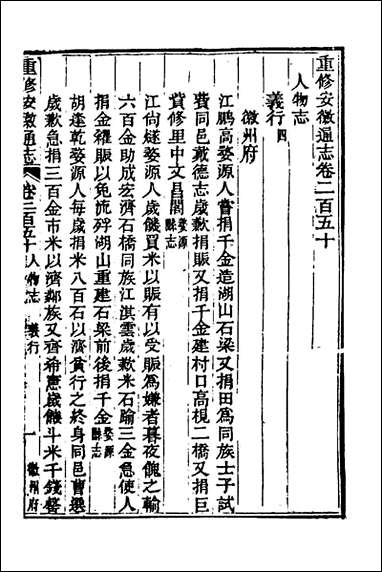 重修安徽通志卷二百五十
人物志
義行四
徽州府
江鵬高婺源人嘗捐千金造湖山石梁又捐田爲同族士子試
費同邑戴德志歲歉捐賑又捐千金建村口高梘二橋又捐巨
貲修里中文昌閣婺源縣志
江尙燧婺源人歲饑買米以賑有以受賑爲嫌者暮夜餽之輸
六百金助成宏濟石橋同族江淇雲歲歉米石踰三金急使人
捐金糴賑以免流殍湖山重建石梁前後捐千金婺源縣志
胡逢乾婺源人每歲捐米八百石以濟貧行之終身同邑曹選
歲歉急捐三百金市米以濟鄰族又齊希憲歲饑斗米千錢罄
重修安徽通志
卷二百五十人物志
義行
一
徽州府